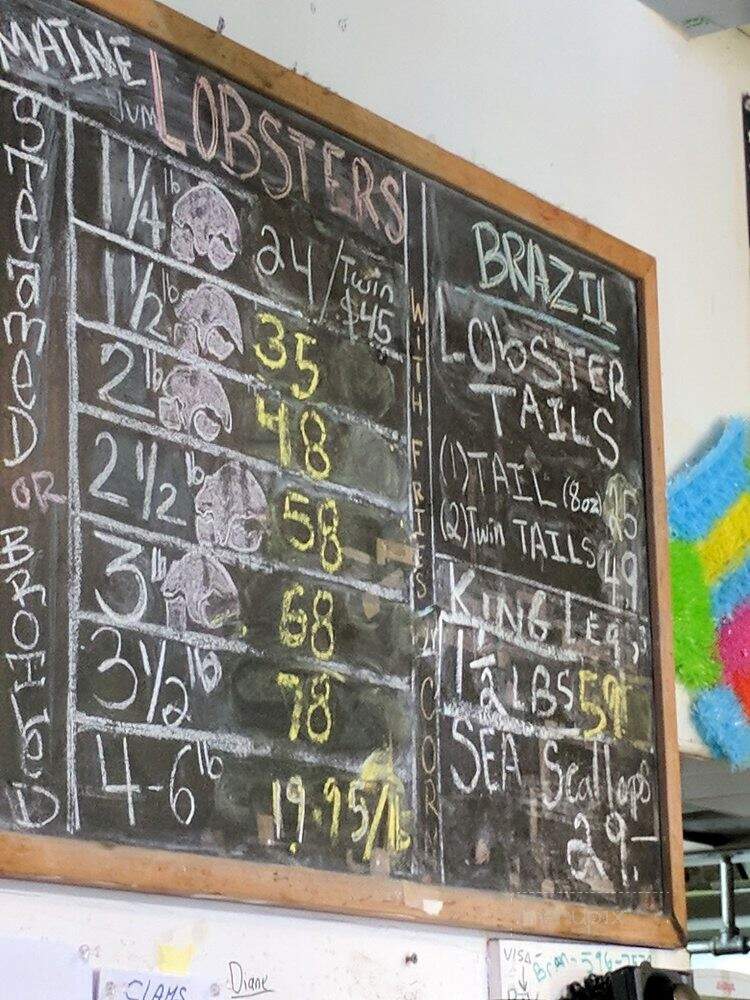 MAINE
LOBSTERS
SteameD
OR
BROILeD
1 1/4 lb 24/Twin $45
1 1/2 lb 35
2 lb 48
2 1/2 lb 58
3 lb 68
3 1/2 lb 78
4-6 lb 19.95/lb
WITH FRIES
CORN
BRAZIL
LObSTER
TAILS
(1) TAIL (8oz) 25
(2) Twin TAILS 49
KING LEgs
1 1/2 LBS 59
SEA Scallops
29.-
CLAMS
Diane
VISA
menupix